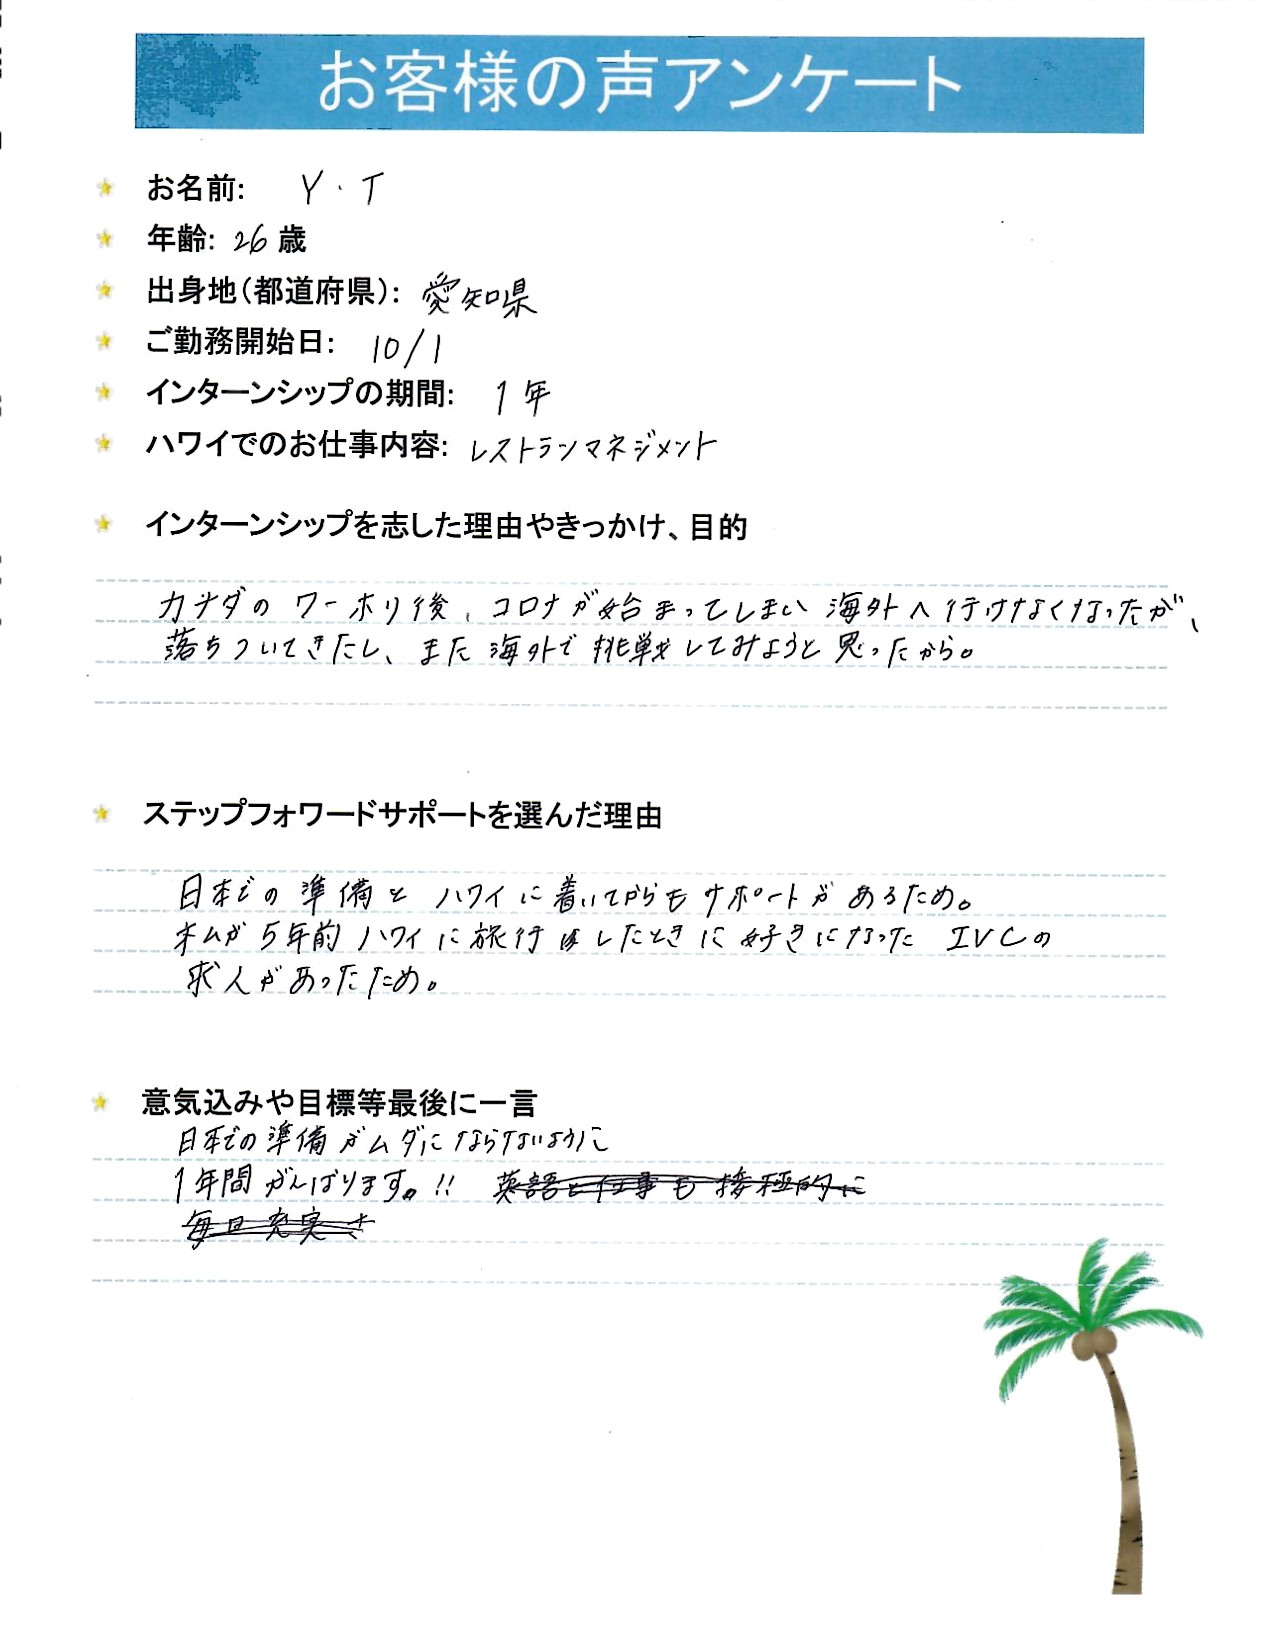 お客様の声アンケート
お名前: Y・T
年齢: 26 歳
出身地(都道府県): 愛知県
ご勤務開始日: 10/1
インターンシップの期間: 1年
ハワイでのお仕事内容: レストランマネジメント
インターンシップを志した理由やきっかけ、目的
カナダの ワーホリ後、コロナが始まってしまい 海外へ行けなくなったが、
落ちついてきたし、また海外で挑戦してみようと思ったから。
ステップフォワードサポートを選んだ理由
日本での準備と ハワイに着いてからもサポートがあるため。
私が5年前ハワイに旅行はしたときに好きになった IVCの
求人があったため。
意気込みや目標等最後に一言
日本での準備がムダにならないように
1年間がんばります。!! 英語と仕事も接極的に
毎日充実